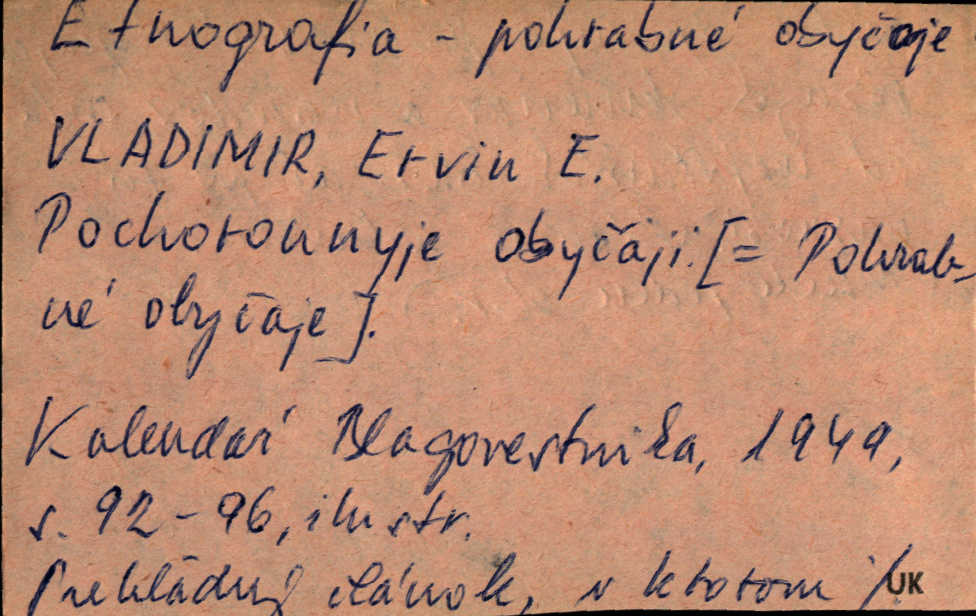 Etnografia - pohrabné obyčaje
VLADIMIR, Ervin E.
Pochoronnyje obyčaji. [= Pohrab-
né obyčaje].
Kalendaŕ Blagovestnika, 1949,
s. 92-96, ilustr.
Prehľadný článok, v ktorom
UK